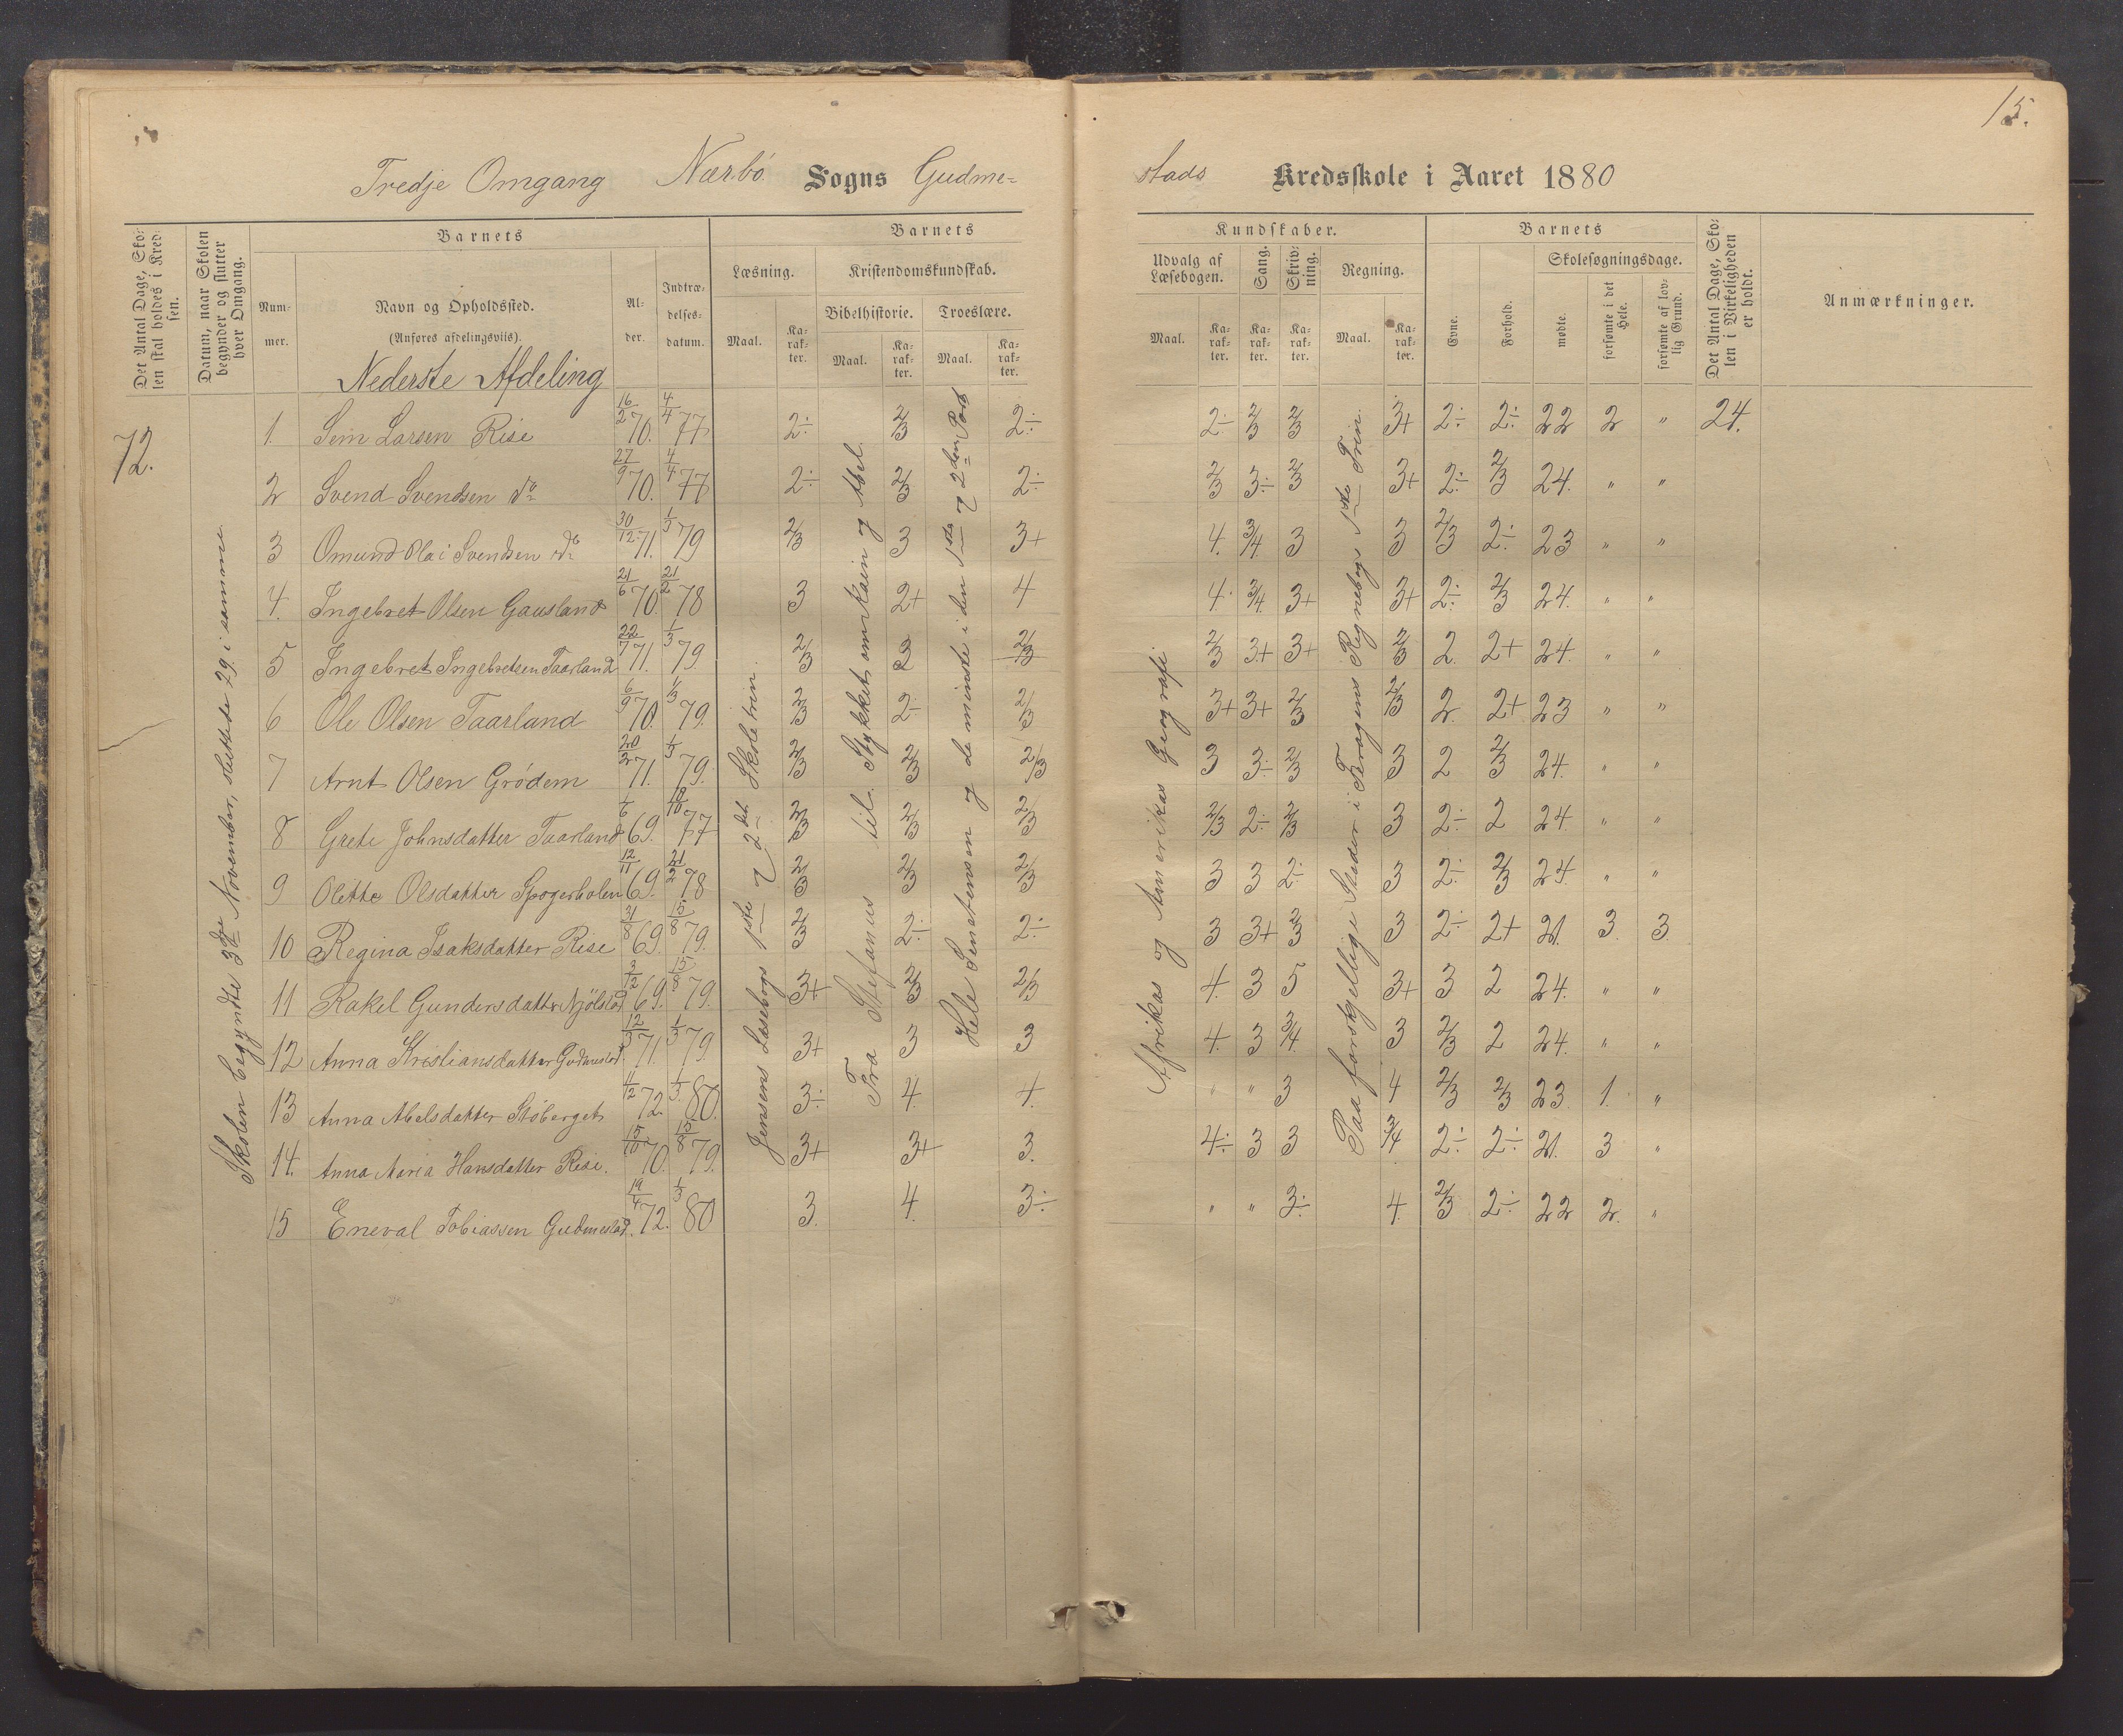 15.
Tredje Omgang Nærbø Sogns Gudme-
stads Kredsskole i Aaret 1880
Det Antal Dage, Skolen skal holdes i Kredsen.
Datum, naar Skolen begynder og slutter hver Omgang.
Barnets
Nummer.
Navn og Opholdssted.
(Anføres afdelingsviis).
Alder.
Indtrædelsesdatum.
Barnets
Læsning.
Maal.
Karakter.
Kristendomskundskab.
Bibelhistorie.
Maal.
Karakter.
Troeslære.
Maal.
Karakter.
Kundskaber.
Udvalg af Læsebogen.
Maal.
Karakter.
Sang.
Karakter.
Skrivning.
Karakter.
Regning.
Maal.
Karakter.
Barnets
Evne.
Forhold.
Skolesøgningsdage.
mødte.
forsømte i det Hele.
forsømte af lovlig Grund.
Det Antal Dage, Skolen i Virkeligheden er holdt.
Anmærkninger.
Nederste Afdeling
72.
Skolen begyndte 3die November, sluttede 29. i samme
Jensens Læsebogs 1ste og 2det Skoletrin.
Fra Stefanus til Stykket om Kain og Abel
Hele Sentensen og de mindste i den 1ste og 2den Part
Afrikas og Amerikas Geografi
Paa forskjellige Steder i Færagens Regnebogs 1ste Trin.
1. Sem Larsen Rise 16/2 70. 4/4 77 2÷ 2/3 2÷ 2÷ 2/3 2/3 3+ 2÷ 2÷ 22 2 " 24.
2 Svend Svendsen do 27/9 70. 4/4 77 2÷ 2/3 2÷ 2/3 3÷ 2/3 3+ 2÷ 2/3 24. " "
3 Omund Olai Svendsen do 30/12 71. 1/3 79 2/3 3 3+ 4. 3/4 3 3 2/3 2÷ 23 " "
4. Ingebret Olsen Gausland 21/6 70 21/2 78 3 2+ 4 4. 3/4. 3+ 3+ 2÷ 2/3 24. " "
5 Ingebret Ingebretsen Taarland 22/7 71. 1/3 79. 2/3 2 2/3 2/3 3+ 3+ 2/3 2. 2+ 24. " "
6 Ole Olsen Taarland 6/9 70. 1/3 79. 2/3 2÷ 2/3 3+ 3+ 2/3 2/3 2. 2+ 23 " "
7 Arnt Olsen Grødem 20/2 71. 1/3 79. 2/3 2/3 2/3 3 3÷ 2/3 3 2 2/3 24. " "
8 Grete Johnsdatter Taarland 1/6 69. 10/10 77 2/3 2/3 2/3 2/3 2÷ 2/3 3 2÷ 2 24. " "
9 Olette Olsdatter 12/11 69. 21/2 78 2/3 2/3 2/3 3 3 2÷ 3 2÷ 2/3 24. " "
10 Regina Isaksdatter Rise 31/8 69. 15/8 79. 2/3 2÷ 2÷ 3 3+ 2/3 3 2÷ 2+ 21. 3. 3.
11 Rakel Gundersdatter Njølstad 3/12 69. 15/8 79. 3+ 2/3 2/3 4. 3 5 3+ 3 2 24. " "
12 Anna Kristiansdatter Gudmestad. 12/3 71. 1/3 79. 3+ 3 3 4. 3 3/4. 3 2/3 2 24. " "
13 Anna Abelsdatter Støberget 1/12 72. 1/3 80. 3÷ 4. 4. " " 3 4 2/3 2/3 23 1. "
14. Anna Maria Hansdatter Rise. 15/10 70. 15/8 79. 3+ 3+ 3. 4÷ 3 3 3/4 2÷ 2÷ 21. 3 "
15 Eneval Tobiassen Gudmestad. 19/4 72. 1/3 80 3. 4. 3÷ " " 3÷ 4. 2/3 2÷ 22 2. "